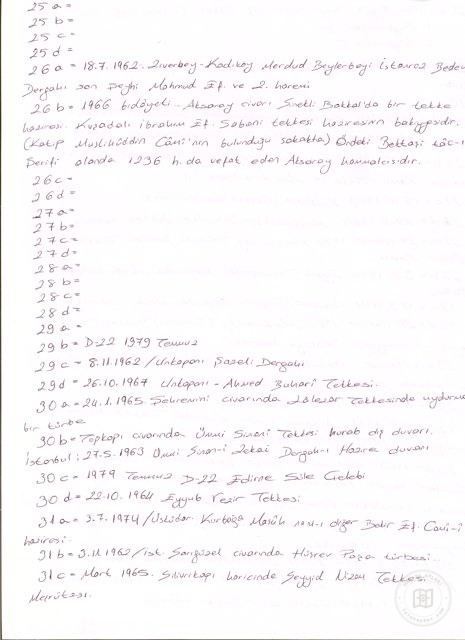 25 a =
25 b =
25 c =
25 d =
26 a = 18.7.1962. Ziverbey-Kadıköy Merdud Beylerbeyi İstavroz Bedevi
Dergahı son Şeyhi Mahmud Ef. ve 2. haremi
26 b = 1966 bidâyeti.. Aksaray civarı Sinekli Bakkal'da bir tekke
haziresi. Kuşadalı İbrahim Ef. Şabani tekkesi haziresinin bakiyyesidir.
(Katip Muslihûddin Câmi'nin bulunduğu sokakta) Öndeki Bektaşi tâc-ı
Şerifi olanda 1236 h. da vefat eden Aksaray hammalcısıdır.
26 c =
26 d =
27 a =
27 b =
27 c =
27 d =
28 a =
28 b =
28 c =
28 d =
29 a =
29 b = D-22 1979 Temmuz
29 c = 8.11.1962 / Unkapanı Şazeli Dergahı
29 d = 26.10.1967 Unkapanı - Ahmed Buharî Tekkesi.
30 a = 24.1.1965. Şehremini civarında Lâlezar Tekkesinde uydurma
bir türbe
30 b = Topkapı civarında Ümmi Sinani Tekkesi harab dış duvarı.
İstanbul: 27.5.1963 Ümmi Sinan-i Zekai Dergahı Hazire duvarı
30 c = 1979 Temmuz D-22 Edirne Şile Çelebi
30 d = 22.10.1964 Eyyub Vezir Tekkesi
31 a = 3.7.1974 / Üsküdar. Kurbağa Nasûh nam-ı diğer Bekir Ef. Cami-i
haziresi.
31 b = 3.11.1962 / ist. Sarıgüzel civarında Hüsrev Paşa türbesi..
31 c = Mart 1965. Silivrikapı haricinde Seyyid Nizam Tekkesi
Meşrûtası.